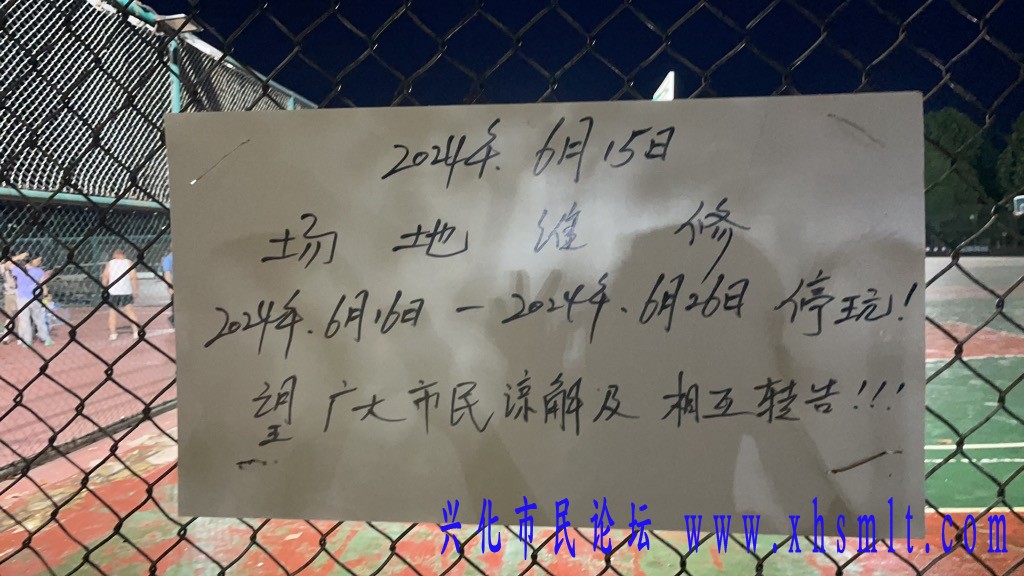 2024年.6月15日
场地维修
2024年.6月16日－2024年.6月26日 停玩!
望广大市民谅解及相互转告!!!
兴化市民论坛 www.xhsmlt.com